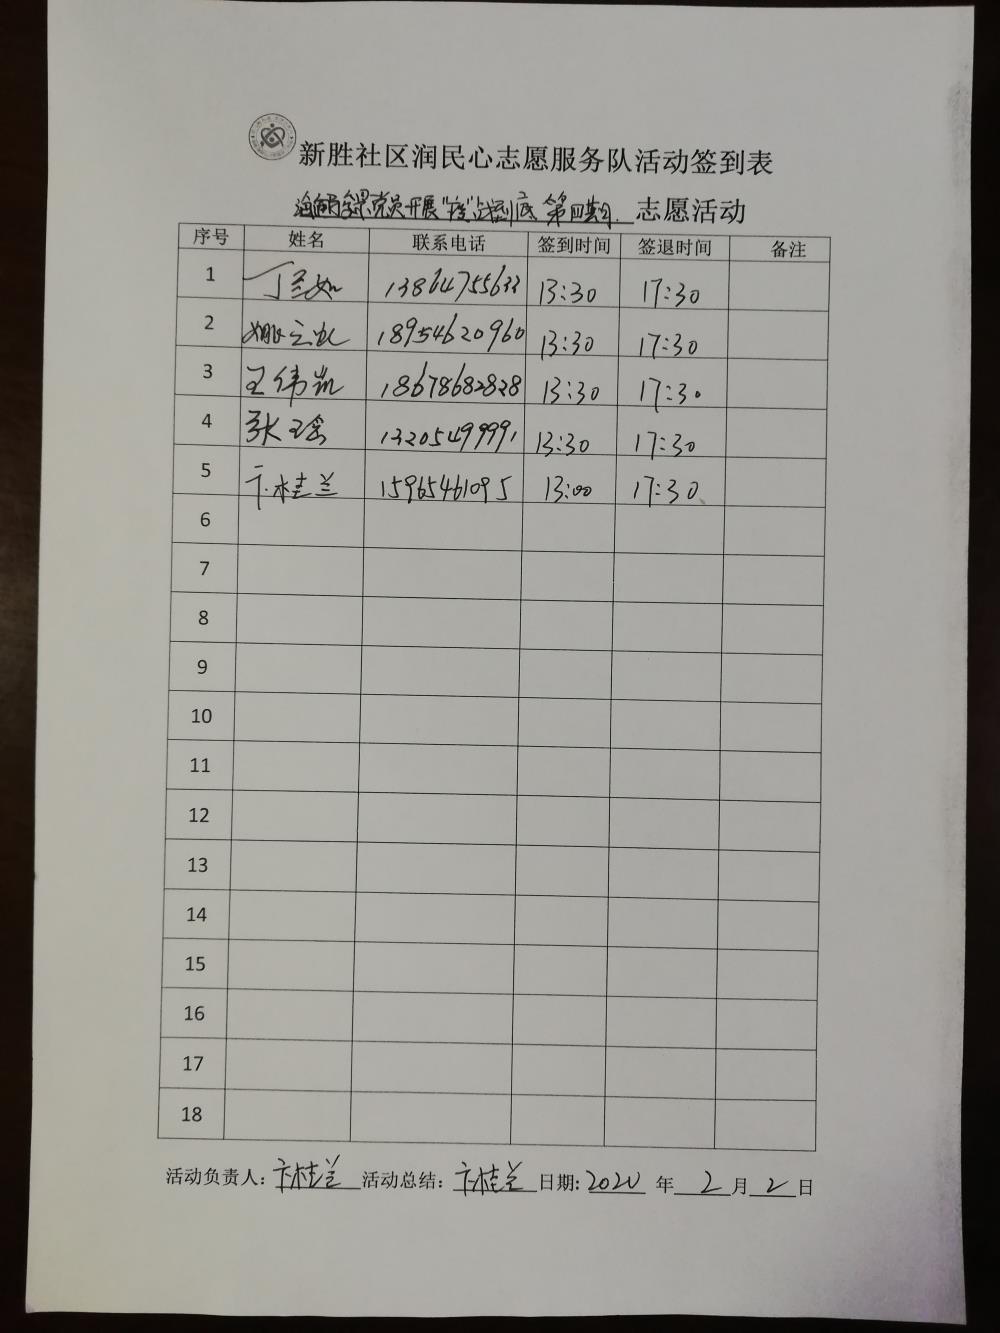 新胜社区润民心志愿服务队活动签到表
党员开展"疫"战到底 第四期 志愿活动
序号 姓名 联系电话 签到时间 签退时间 备注
1 丁兰如 13864755633 13:30 17:30
2 姚 18954620960 13:30 17:30
3 王伟凯 18678682828 13:30 17:30
4 张玉 13205499991 13:30 17:30
5 卞桂兰 15965461095 13:00 17:30
6
7
8
9
10
11
12
13
14
15
16
17
18
活动负责人: 卞桂兰 活动总结: 卞桂兰 日期: 2020 年 2 月 2 日